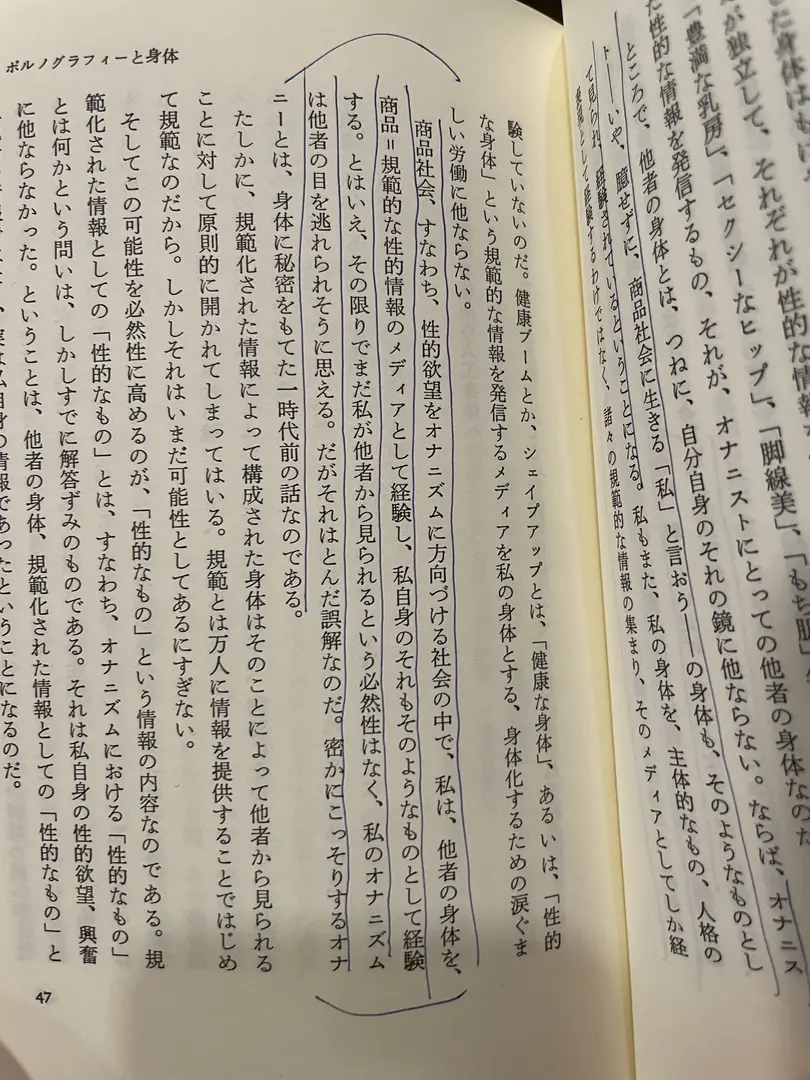 た身体は
が独立して、それぞれが性的な情報
「豊満な乳房」、「セクシーなヒップ」、「脚線美」、「もち肌」
た性的な情報を発信するもの、それが、オナニストにとっての他者の身体なのだ
ところで、他者の身体とは、つねに、自分自身のそれの鏡に他ならない。ならば、オナニス
ト――いや、臆せずに、商品社会に生きる「私」と言おう――の身体も、そのようなものとし
て見られ、経験されているということになる。私もまた、私の身体を、主体的なもの、人格の
として経験するわけではなく、諸々の規範的な情報の集まり、そのメディアとしてしか経
ポルノグラフィーと身体
験していないのだ。健康ブームとか、シェイプアップとは、「健康な身体」、あるいは、「性的
な身体」という規範的な情報を発信するメディアを私の身体とする、身体化するための涙ぐま
しい労働に他ならない。
商品社会、すなわち、性的欲望をオナニズムに方向づける社会の中で、私は、他者の身体を、
商品＝規範的な性的情報のメディアとして経験し、私自身のそれもそのようなものとして経験
する。とはいえ、その限りでまだ私が他者から見られるという必然性はなく、私のオナニズム
は他者の目を逃れられそうに思える。だがそれはとんだ誤解なのだ。密かにこっそりするオナ
ニーとは、身体に秘密をもてた一時代前の話なのである。
たしかに、規範化された情報によって構成された身体はそのことによって他者から見られる
ことに対して原則的に開かれてしまってはいる。規範とは万人に情報を提供することではじめ
て規範なのだから。しかしそれはいまだ可能性としてあるにすぎない。
そしてこの可能性を必然性に高めるのが、「性的なもの」という情報の内容なのである。規
範化された情報としての「性的なもの」とは、すなわち、オナニズムにおける「性的なもの」
とは何かという問いは、しかしすでに解答ずみのものである。それは私自身の性的欲望、興奮
に他ならなかった。ということは、他者の身体、規範化された情報としての「性的なもの」と
実は私自身の情報であったということになるのだ。
47